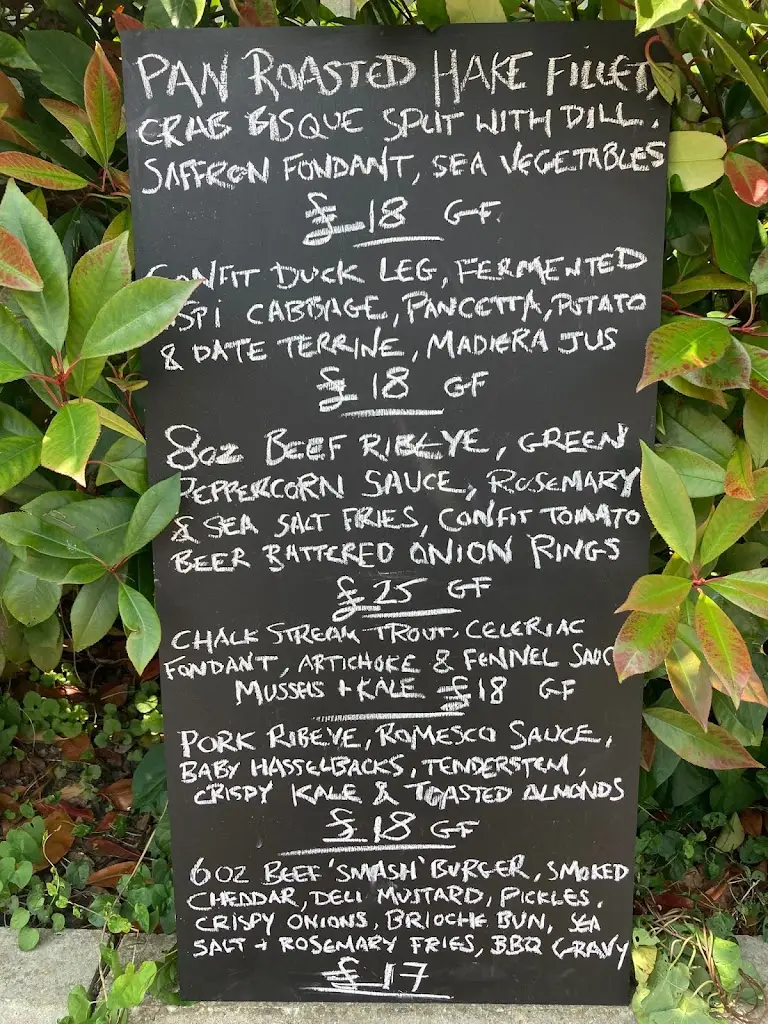 PAN ROASTED HAKE FILLET,
CRAB BISQUE SPLIT WITH DILL,
SAFFRON FONDANT, SEA VEGETABLES
£18 GF
CONFIT DUCK LEG, FERMENTED
ISPI CABBAGE, PANCETTA, POTATO
& DATE TERRINE, MADIERA JUS
£18 GF
8OZ BEEF RIBEYE, GREEN
PEPPERCORN SAUCE, ROSEMARY
& SEA SALT FRIES, CONFIT TOMATO
BEER BATTERED ONION RINGS
£25 GF
CHALK STREAM TROUT, CELERIAC
FONDANT, ARTICHOKE & FENNEL SAUC
MUSSELS + KALE £18 GF
PORK RIBEYE, ROMESCO SAUCE,
BABY HASSELBACKS, TENDERSTEM,
CRISPY KALE & TOASTED ALMONDS
£18 GF
6OZ BEEF 'SMASH' BURGER, SMOKED
CHEDDAR, DELI MUSTARD, PICKLES,
CRISPY ONIONS, BRIOCHE BUN, SEA
SALT + ROSEMARY FRIES, BBQ GRAVY
£17